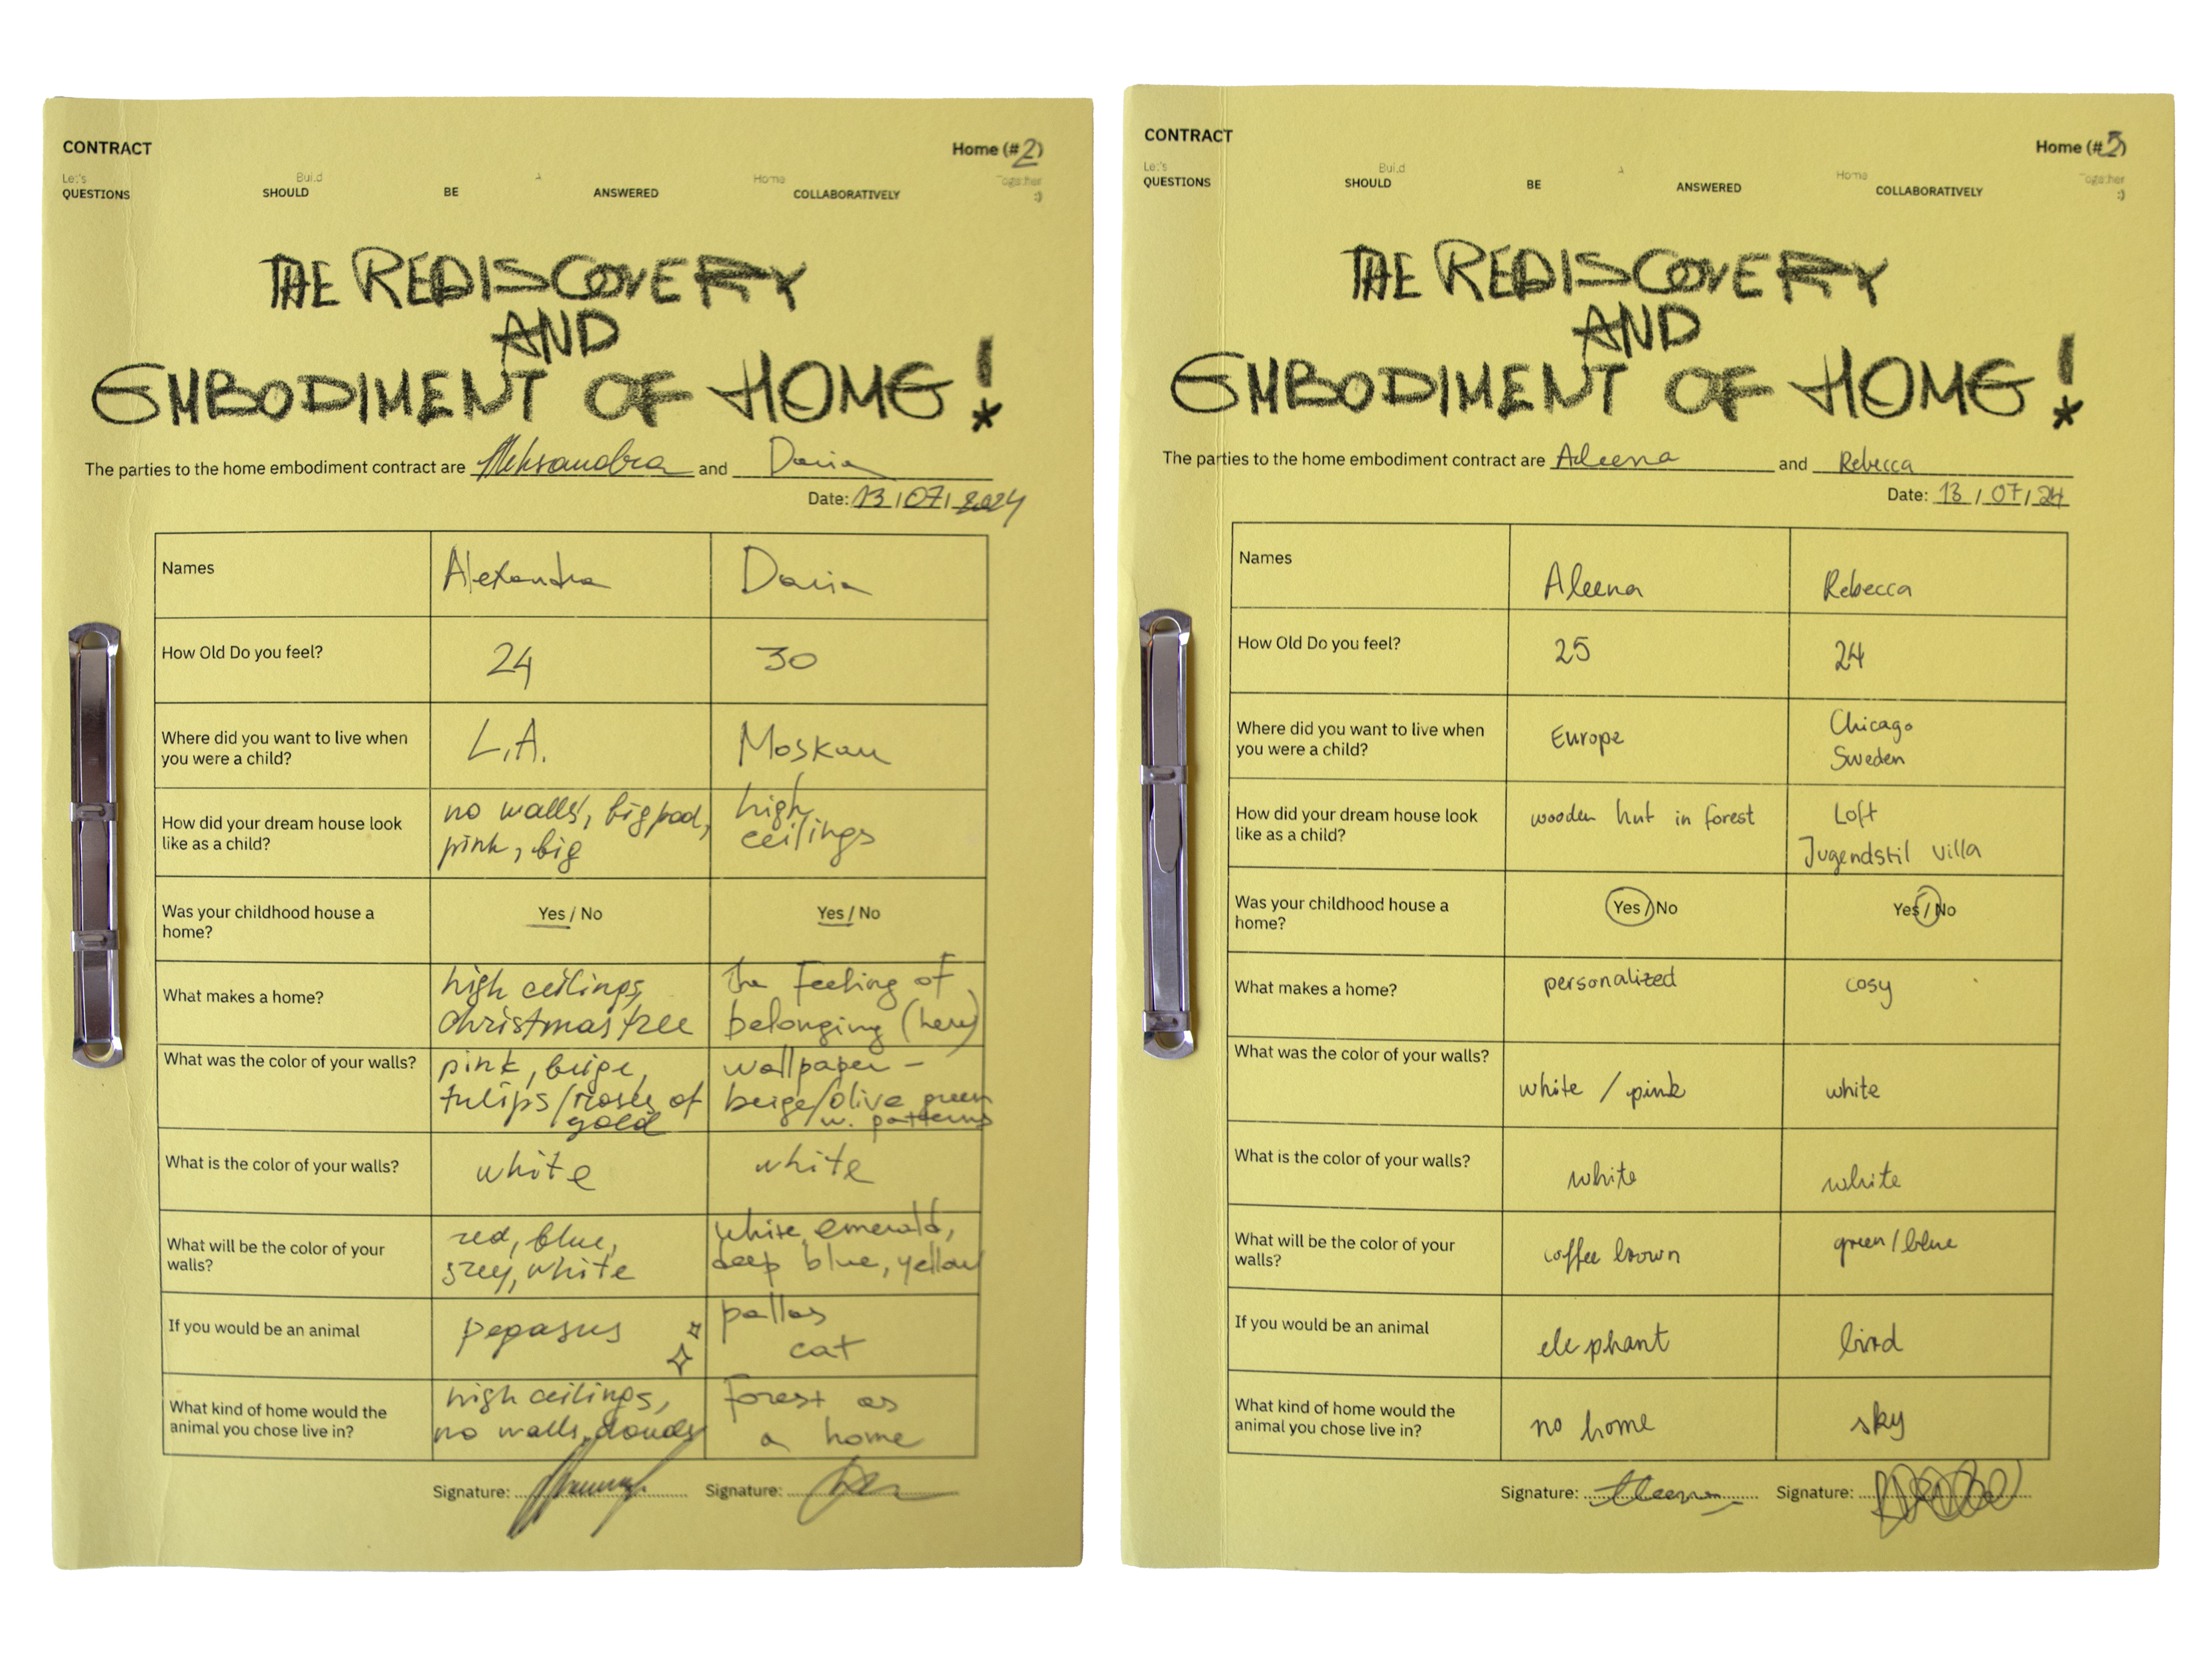 CONTRACT
Home (#2)
Let's Build A Home Together
QUESTIONS SHOULD BE ANSWERED COLLABORATIVELY :)
THE REDISCOVERY
AND
EMBODIMENT OF HOME!
The parties to the home embodiment contract are Aleksandra and Daria
Date: 13/07/2024
Names Alexandra Daria
How Old Do you feel? 24 30
Where did you want to live when L.A. Moskau
you were a child?
How did your dream house look no walls, big pool, high
like as a child? pink, big ceilings
Was your childhood house a Yes / No Yes / No
home?
What makes a home? high ceilings, the feeling of
christmas tree belonging (here)
What was the color of your walls? pink, beige, wallpaper –
tulips/roses of beige/olive green
gold w. patterns
What is the color of your walls? white white
What will be the color of your red, blue, white, emerald,
walls? grey, white deep blue, yellow
If you would be an animal pegasus pallas
cat
What kind of home would the high ceilings, forest as
animal you chose live in? no walls, clouds a home
Signature: Signature:
CONTRACT
Home (#3)
Let's Build A Home Together
QUESTIONS SHOULD BE ANSWERED COLLABORATIVELY :)
THE REDISCOVERY
AND
EMBODIMENT OF HOME!
The parties to the home embodiment contract are Aleena and Rebecca
Date: 13/07/24
Names Aleena Rebecca
How Old Do you feel? 25 24
Where did you want to live when Europe Chicago
you were a child? Sweden
How did your dream house look wooden hut in forest Loft
like as a child? Jugendstil Villa
Was your childhood house a Yes / No Yes / No
home?
What makes a home? personalized cosy
What was the color of your walls?
white / pink white
What is the color of your walls? white white
What will be the color of your coffee brown green/blue
walls?
If you would be an animal elephant bird
What kind of home would the no home sky
animal you chose live in?
Signature: Aleena Signature: